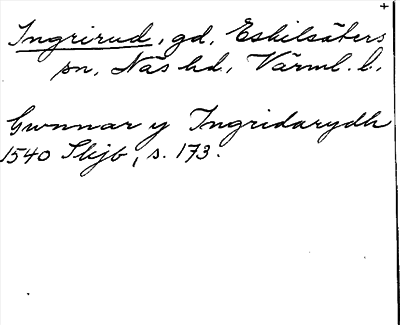 +
Ingrirud, gd, Eskilsäters
sn, Näs hd, Värml. l.
Gunnar y Ingridarydh
1540 Skjb, s. 173.